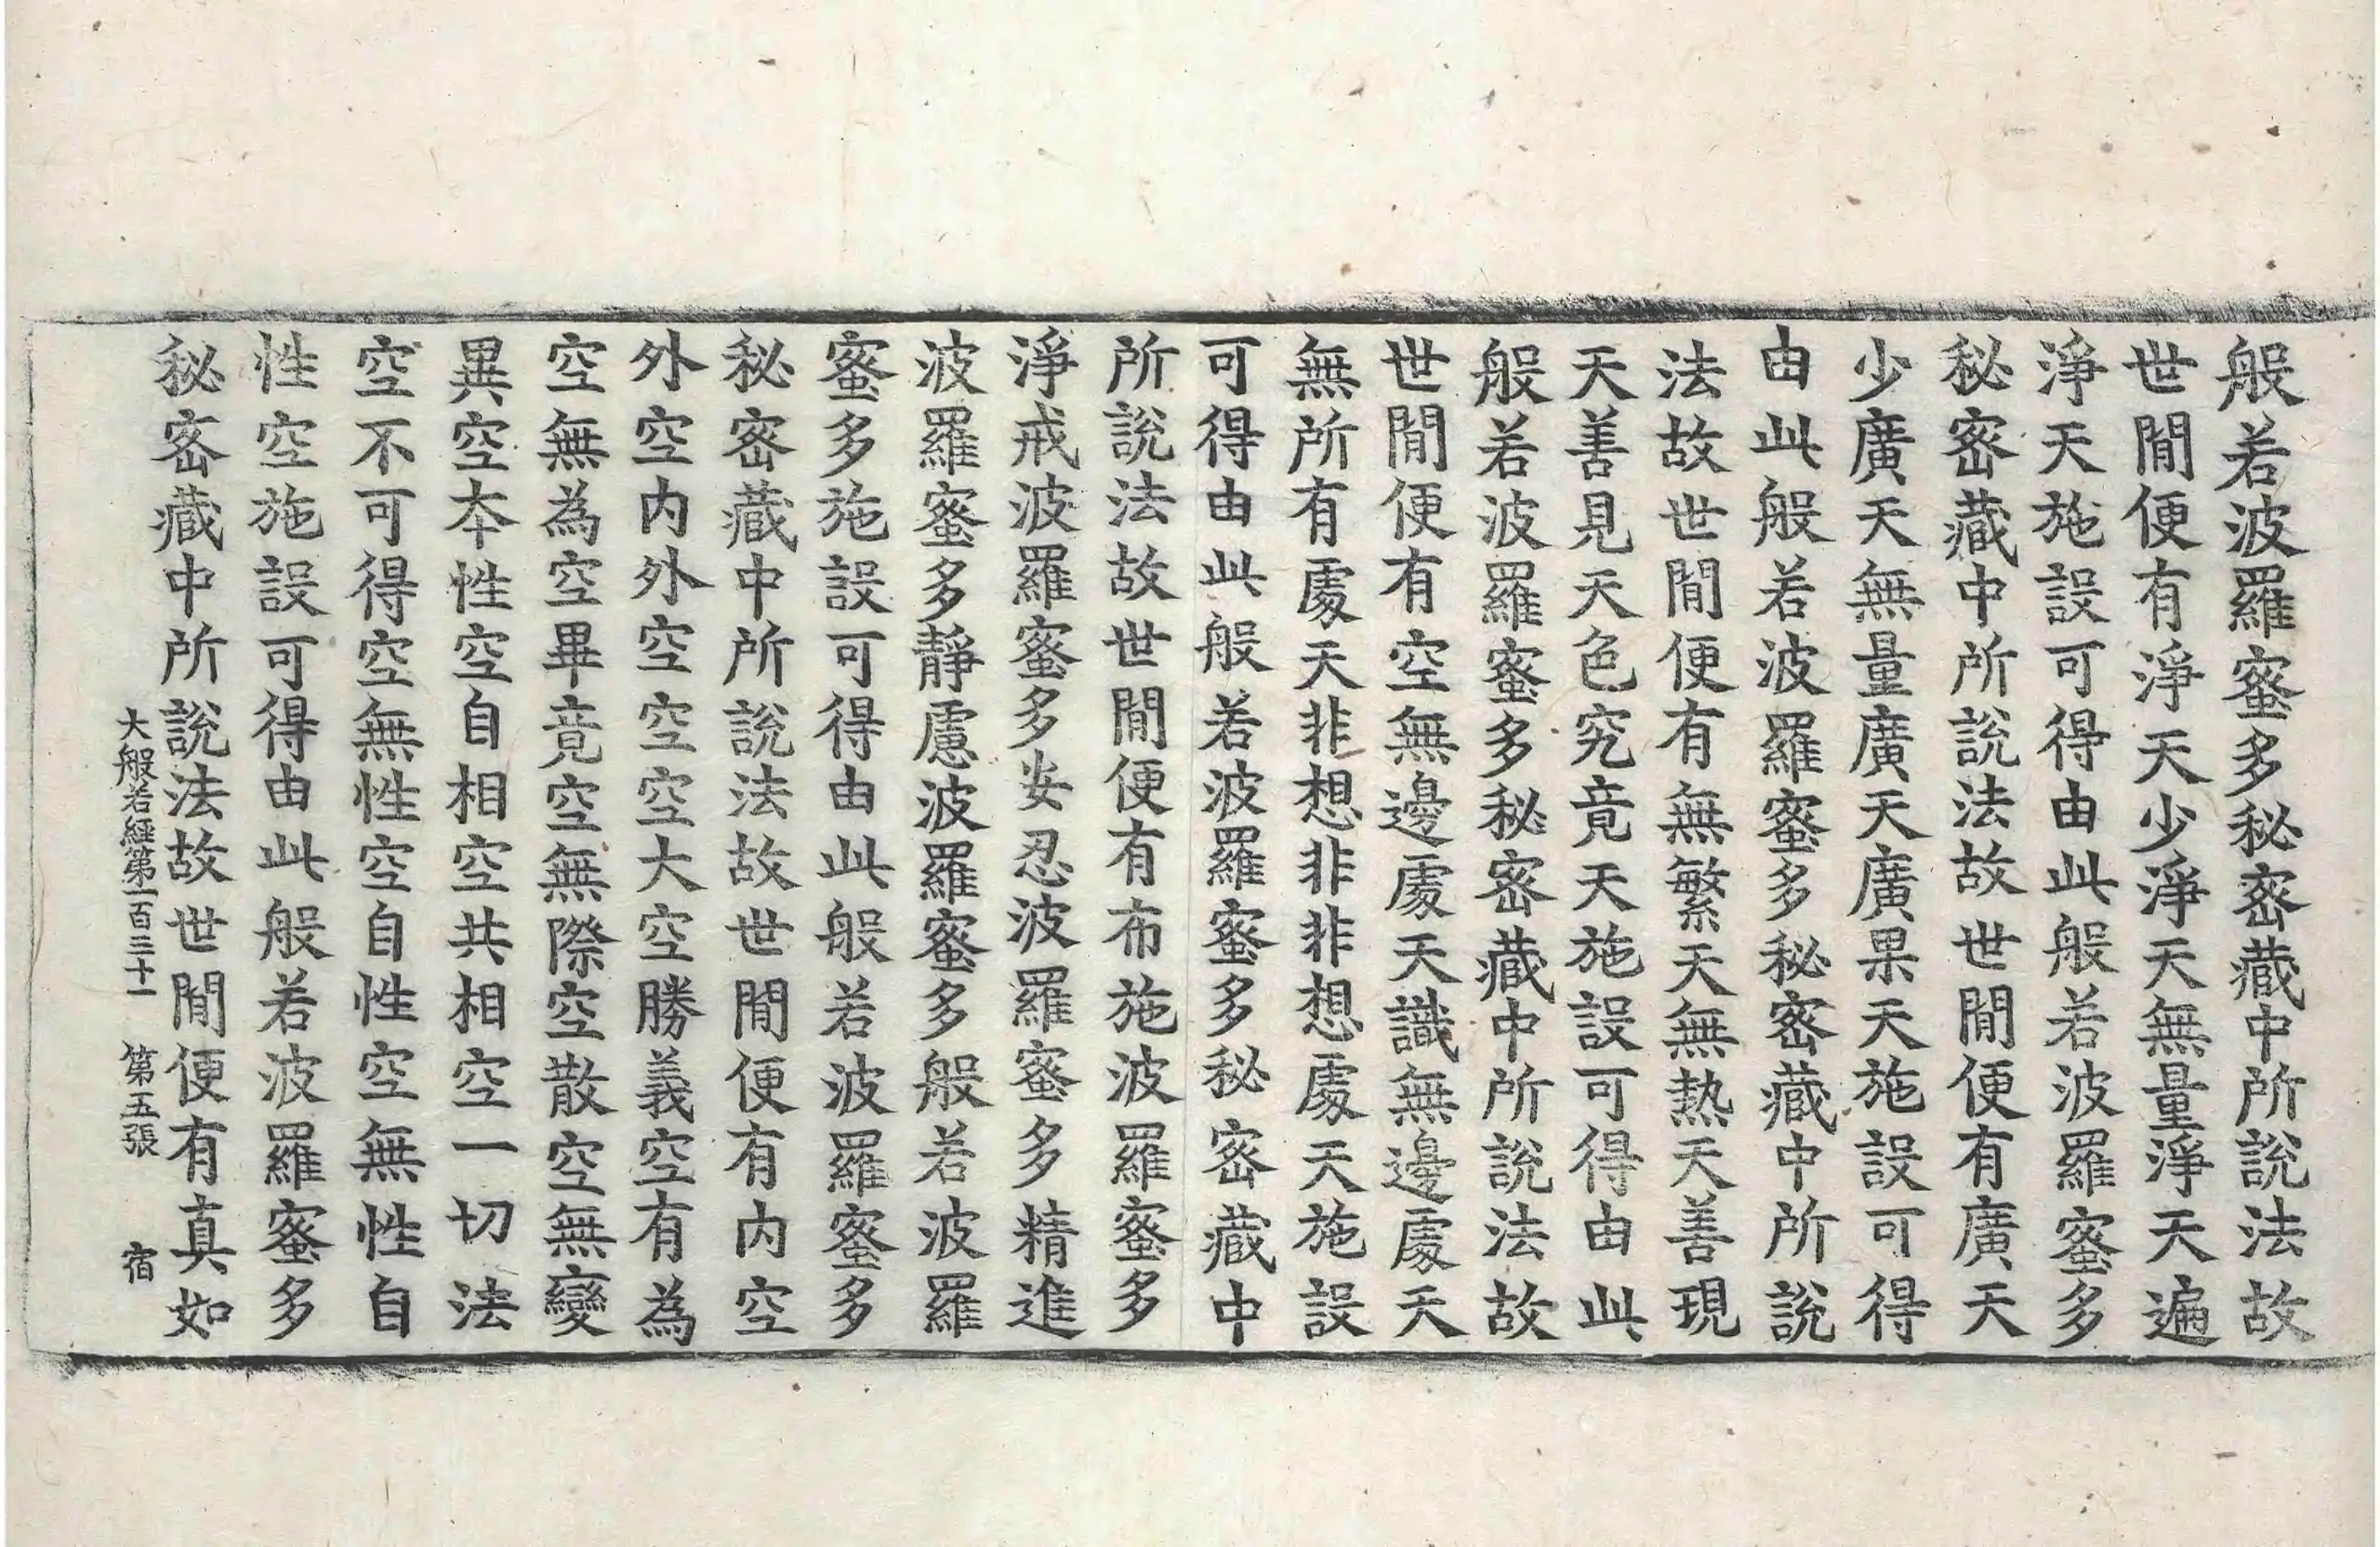 般若波羅蜜多秘密藏中所說法故
世間便有淨天少淨天無量淨天遍
淨天施設可得由此般若波羅蜜多
秘密藏中所說法故世間便有廣天
少廣天無量廣天廣果天施設可得
由此般若波羅蜜多秘密藏中所說
法故世間便有無繁天無熱天善現
天善見天色究竟天施設可得由此
般若波羅蜜多秘密藏中所說法故
世間便有空無邊處天識無邊處天
無所有處天非想非非想處天施設
可得由此般若波羅蜜多秘密藏中
所說法故世間便有布施波羅蜜多
淨戒波羅蜜多安忍波羅蜜多精進
波羅蜜多靜慮波羅蜜多般若波羅
蜜多施設可得由此般若波羅蜜多
秘密藏中所說法故世間便有內空
外空內外空空空大空勝義空有為
空無為空畢竟空無際空散空無變
異空本性空自相空共相空一切法
空不可得空無性空自性空無性自
性空施設可得由此般若波羅蜜多
秘密藏中所說法故世間便有真如
大般若經第一百三十一 第五張 宿